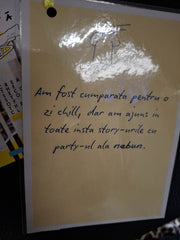 Am fost cumparata pentru o
zi chill, dar am ajuns in
toate insta story-urile cu
party-ul ala nebun.